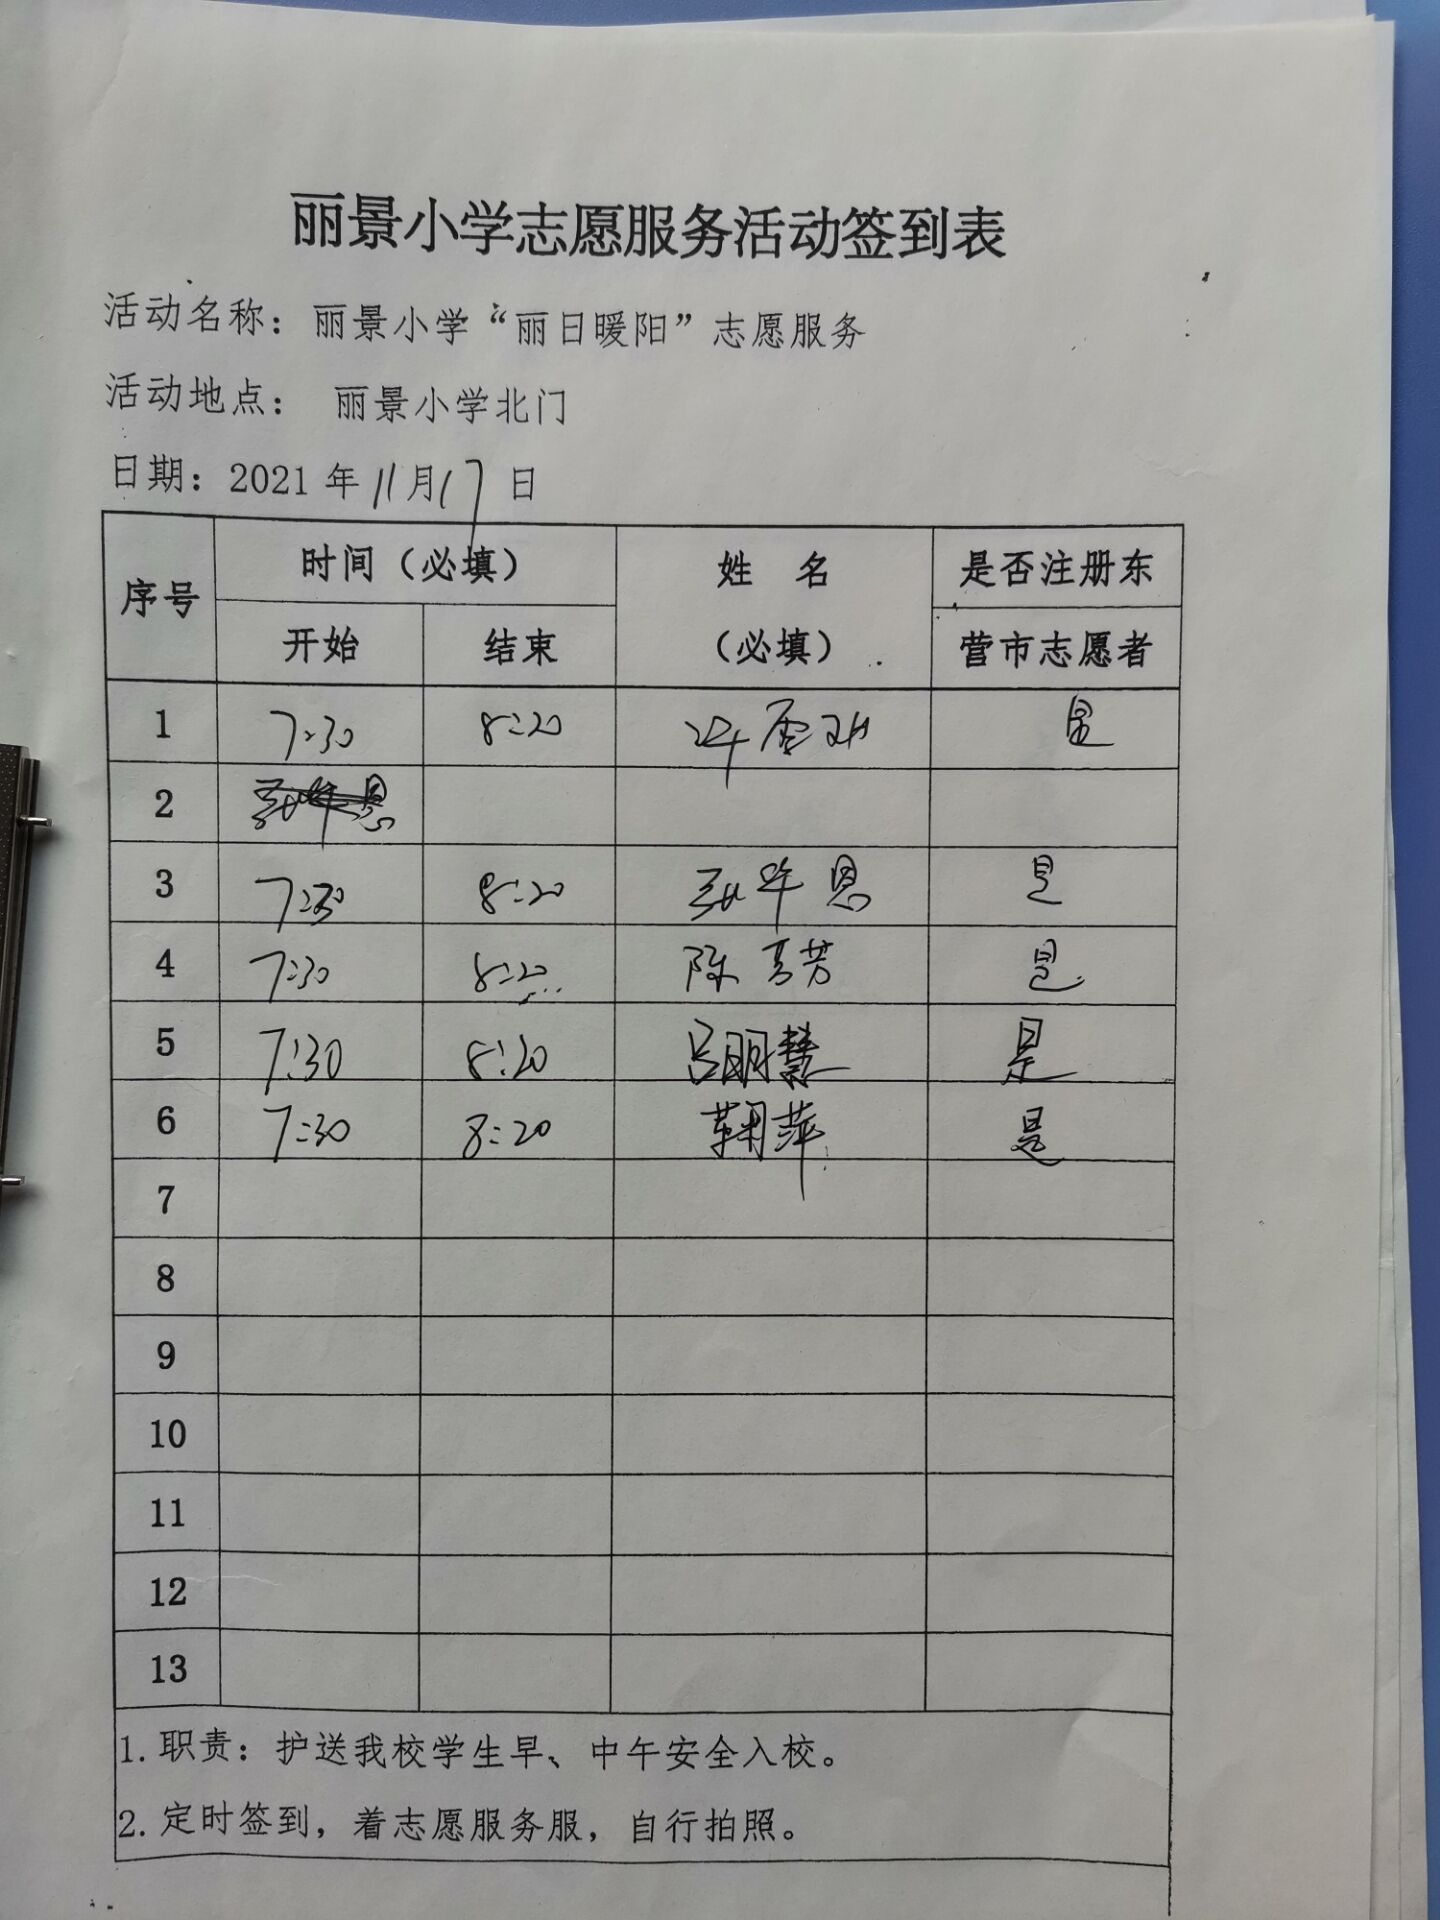 丽景小学志愿服务活动签到表
活动名称：丽景小学“丽日暖阳”志愿服务
活动地点： 丽景小学北门
日期：2021 年 11 月 17 日
序号 时间（必填） 姓 名 是否注册东
开始 结束 （必填） 营市志愿者
1 7:30 8:20 是
2
3 7:30 8:20 是
4 7:30 8:20 陈 芳 是
5 7:30 8:20 吕丽慧 是
6 7:30 8:20 萍 是
7
8
9
10
11
12
13
1. 职责：护送我校学生早、中午安全入校。
2. 定时签到，着志愿服务服，自行拍照。